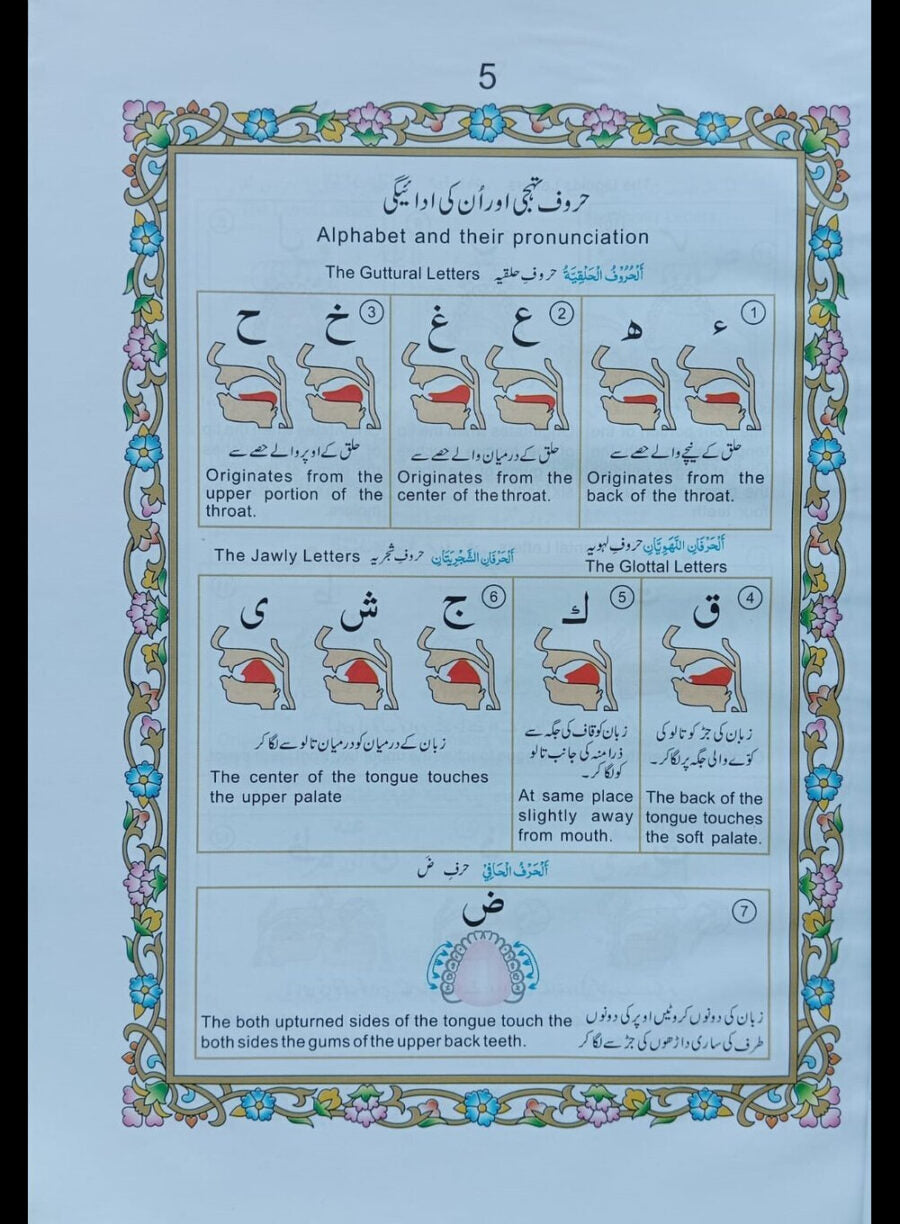 5
حروف تہجی اور اُن کی ادائیگی
Alphabet and their pronunciation
The Guttural Letters حروفِ حلقیہ اَلْحُرُوْفُ الْحَلْقِيَّةُ
1
ء ه
حلق کے نیچے والے حصے سے
Originates from the
back of the throat.
2
ع غ
حلق کے درمیان والے حصے سے
Originates from the
center of the throat.
3
خ ح
حلق کے اوپر والے حصے سے
Originates from the
upper portion of the
throat.
اَلْحَرْفَانِ اللَّهَوِيَّانِ حروفِ لہویہ
The Glottal Letters
4
ق
زبان کی جڑ کو تالو کی
کوّے والی جگہ پر لگا کر۔
The back of the
tongue touches
the soft palate.
5
ك
زبان کو قاف کی جگہ سے
ذرا منہ کی جانب تالو
کو لگا کر۔
At same place
slightly away
from mouth.
The Jawly Letters حروفِ شجریہ اَلْحَرْفَانِ الشَّجْرِيَّتَانِ
6
ج ش ی
زبان کے درمیان کو درمیان تالو سے لگا کر
The center of the tongue touches
the upper palate
اَلْحَرْفُ الْحَافِيُّ حرفِ ض
7
ض
زبان کی دونوں کروٹیں اوپر کی دونوں
طرف کی ساری داڑھوں کی جڑ سے لگا کر
The both upturned sides of the tongue touch the
both sides the gums of the upper back teeth.